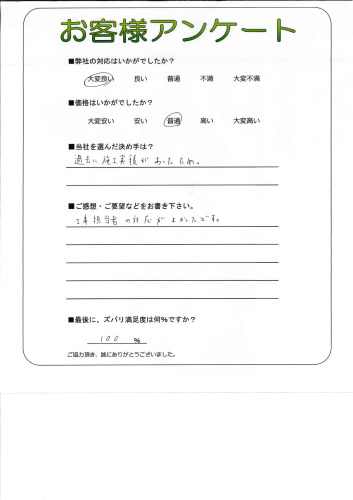 お客様アンケート
■弊社の対応はいかがでしたか？
大変良い 良い 普通 不満 大変不満
■価格はいかがでしたか？
大変安い 安い 普通 高い 大変高い
■当社を選んだ決め手は？
過去に施工実績があったため。
■ご感想・ご要望などをお書き下さい。
工事担当者の対応がよかったです。
■最後に、ズバリ満足度は何%ですか？
100 %
ご協力頂き、誠にありがとうございました。